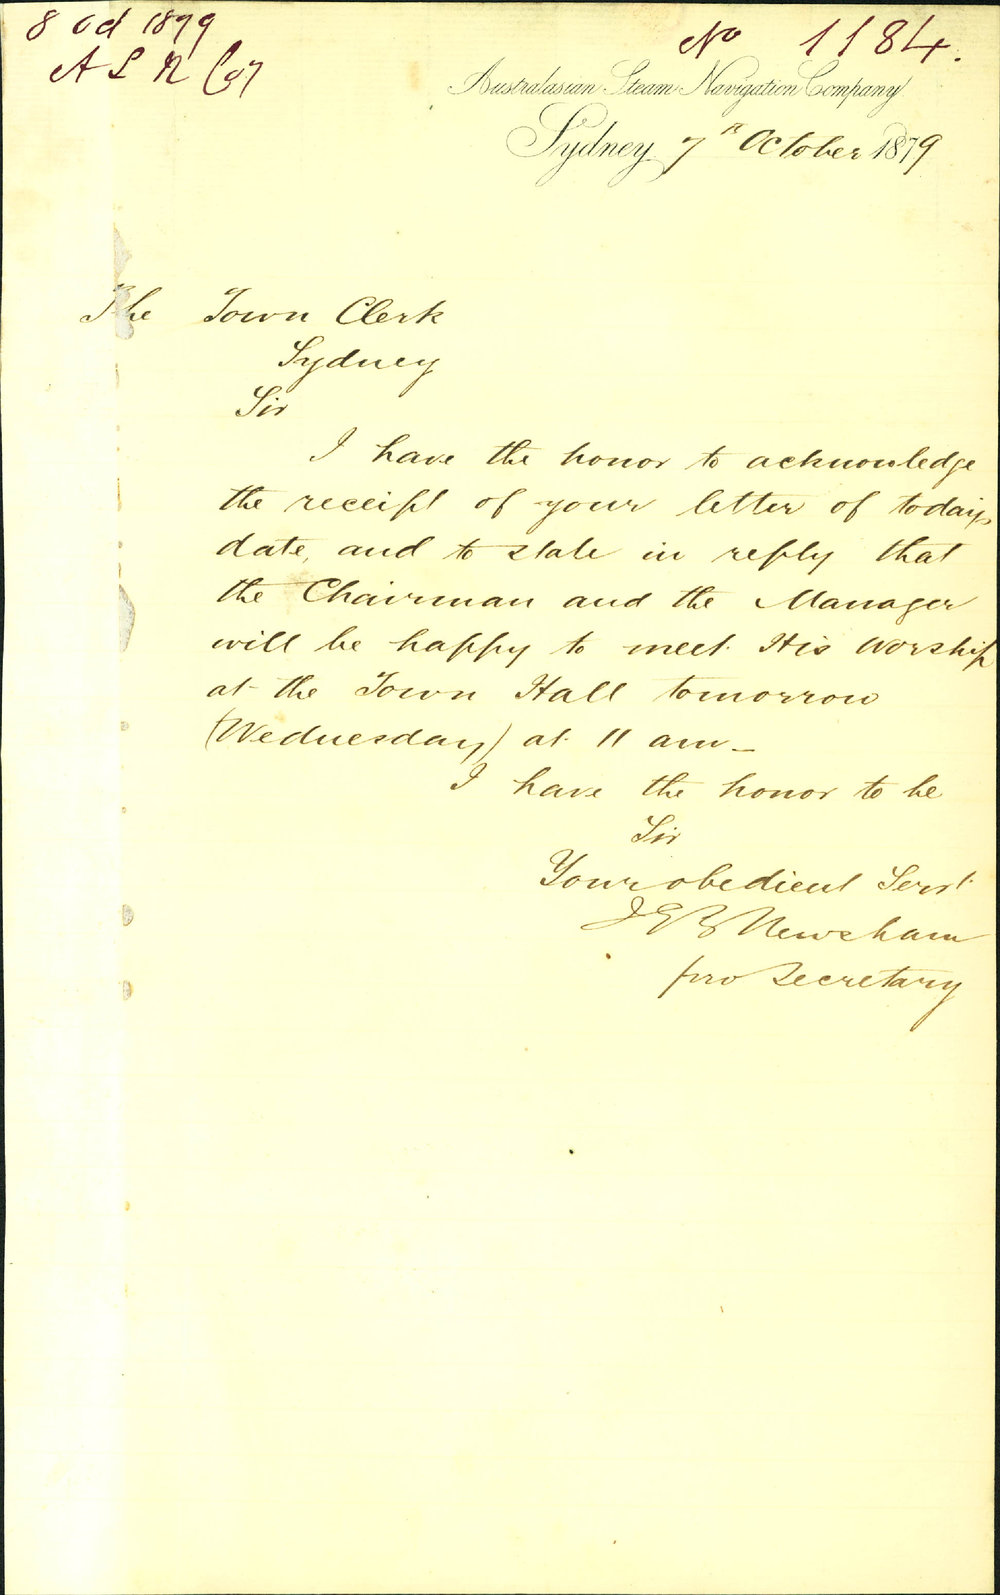 8 Oct 1879
A S N Coy
No 1184.
Australasian Steam Navigation Company
Sydney 7th October 1879
The Town Clerk
Sydney
Sir
I have the honor to acknowledge
the receipt of your letter of todays
date, and to state in reply that
the Chairman and the Manager
will be happy to meet His Worship
at the Town Hall tomorrow
(Wednesday) at 11 am_
I have the honor to be
Sir
Your obedient Servt
Newsham
pro Secretary